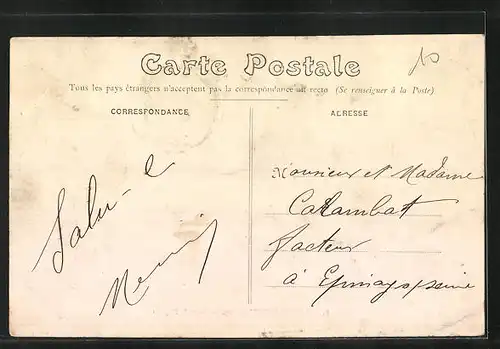 10
Carte Postale
Tous les pays étrangers n'acceptent pas la correspondance au recto (Se renseigner à la Poste)
CORRESPONDANCE
ADRESSE
Monsieur et Madame
Catambat
facteur
à Epinay s/ seine
Salu-e